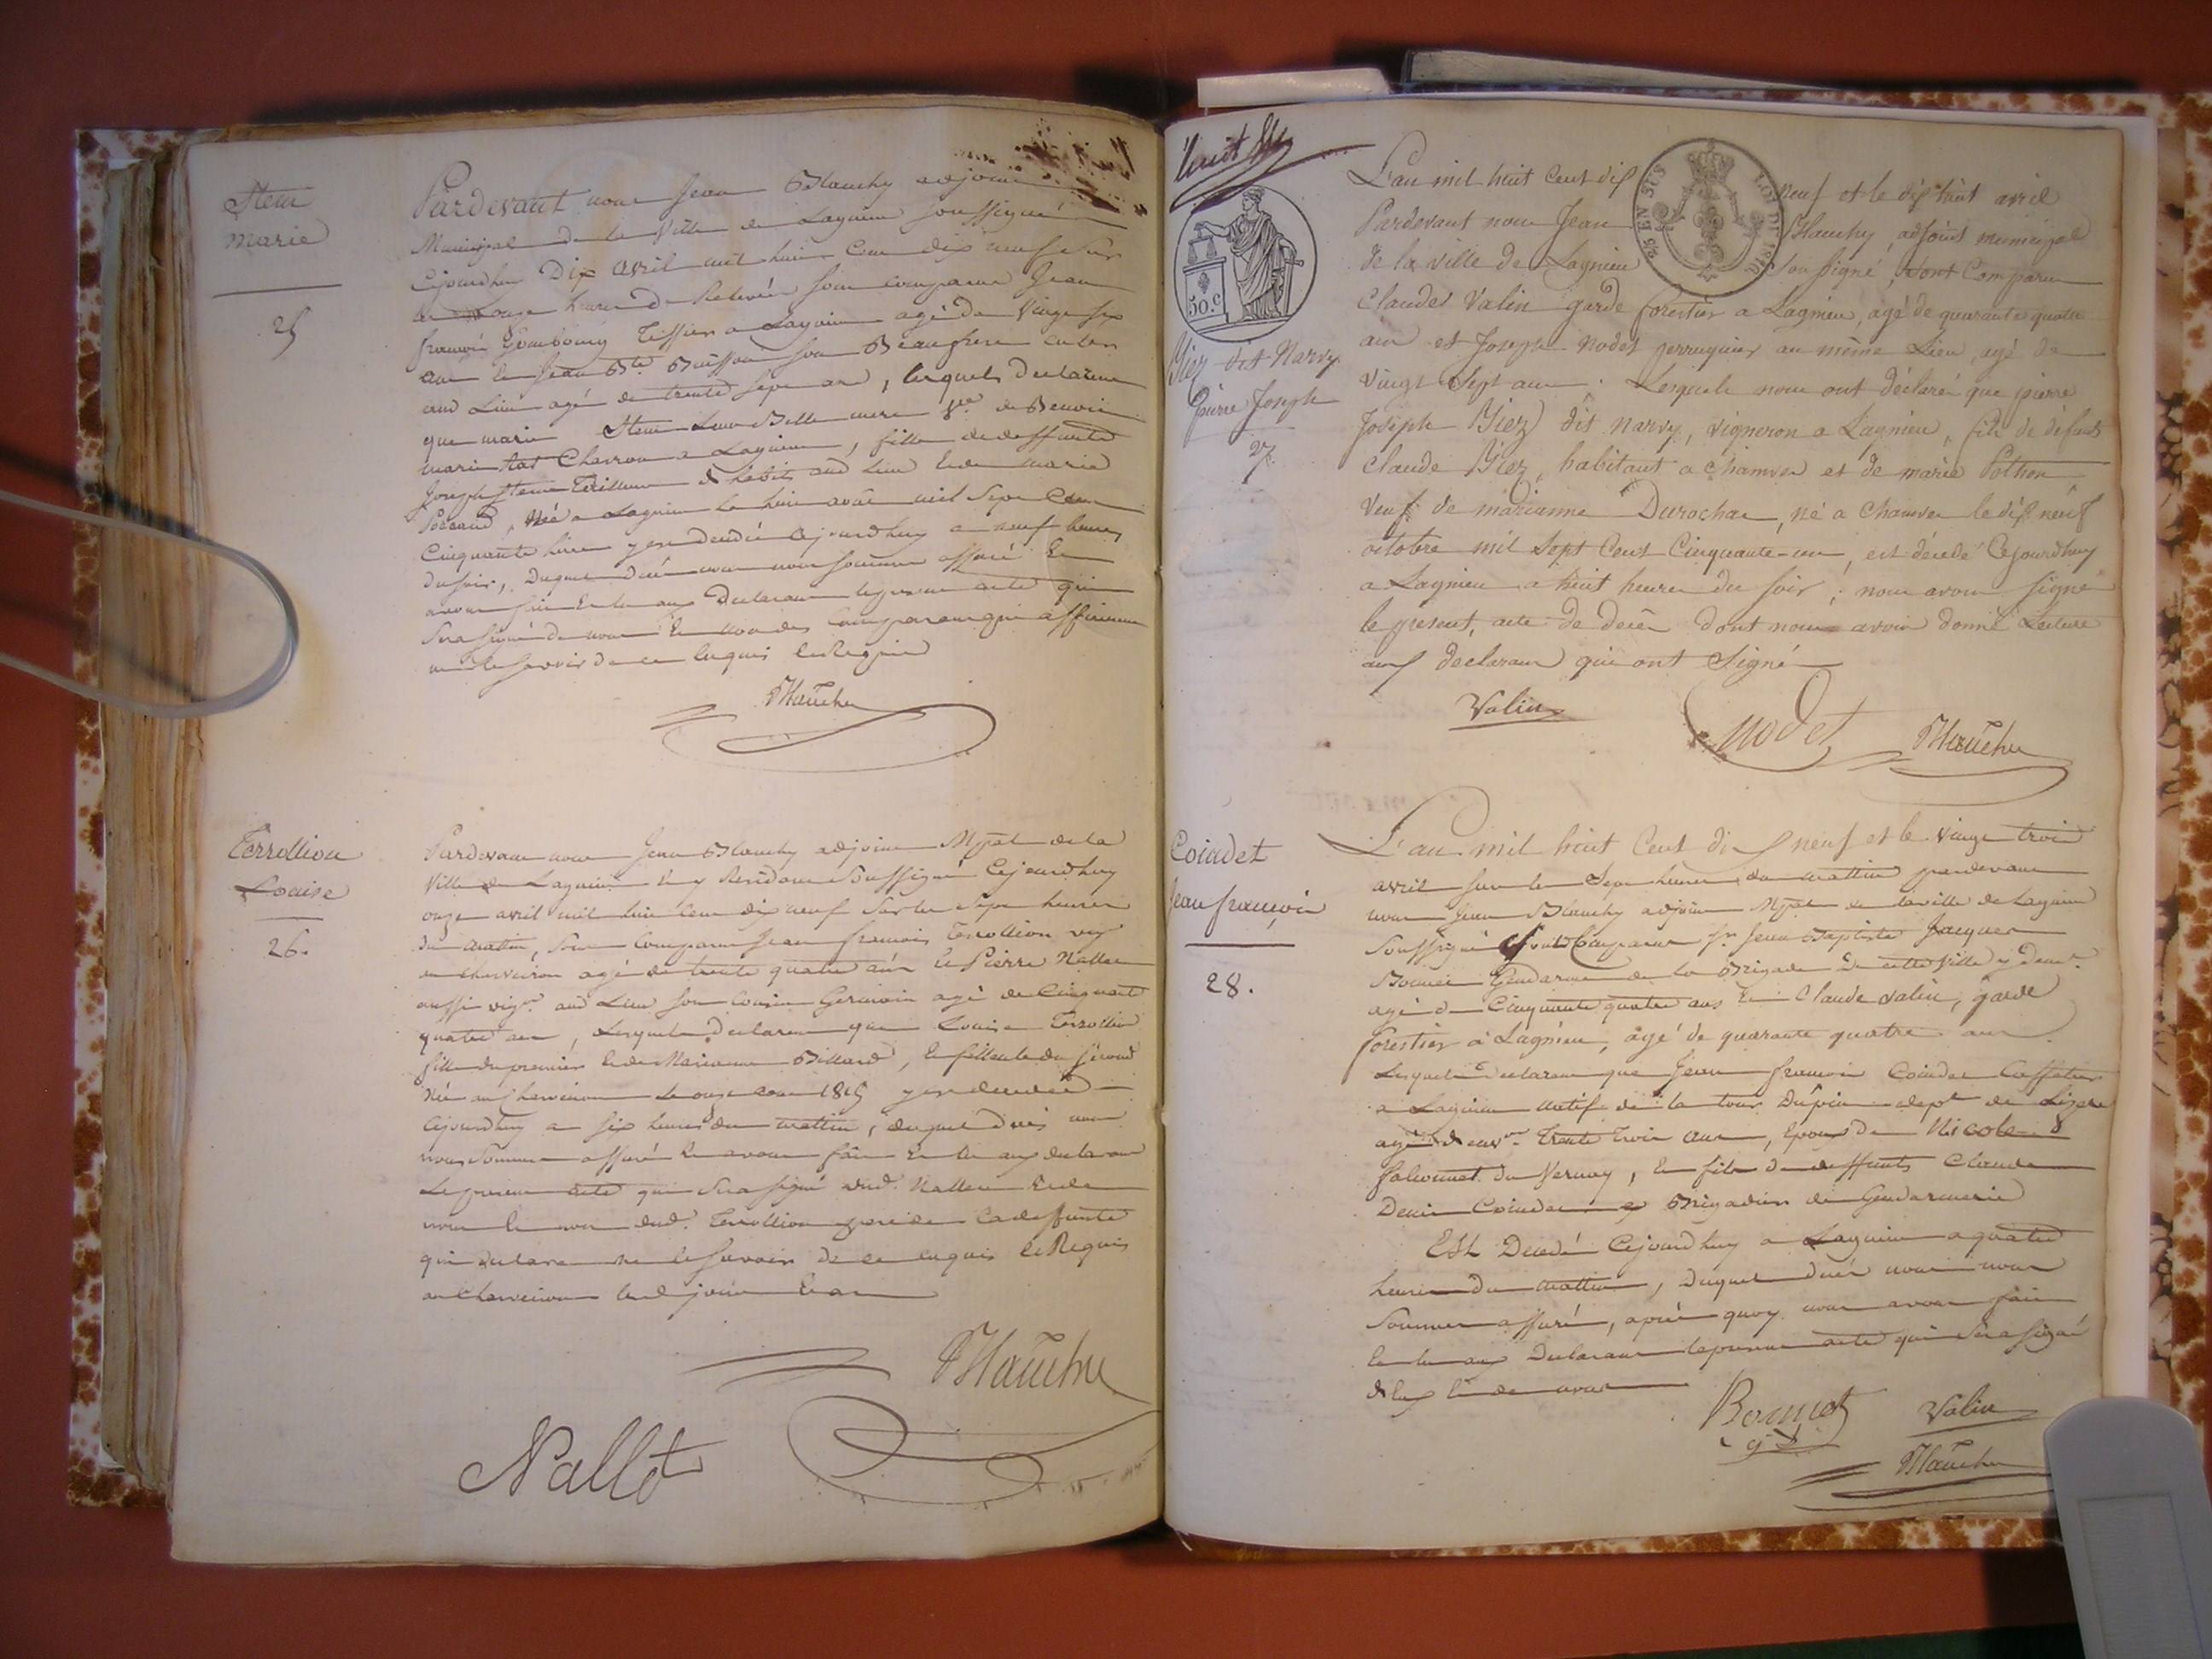 Stem
marie
25
Pardevant nous Jean Blanchy adjoint
Municipal de la Ville de Lagnieu soussigné
Cejourdhuy Dix avril mil huit Cent dix neuf sur
les onze heures de Relevée sont comparus Jean
françois Tissier a Lagnieu agé de Vingt six
ans et Jean Bte Buisson son Beaufrere audit
Lieu agé de trente sept ans, lesquels declarent
que marie Stem Leur Belle mere Ve de Benoit
Charron a Lagnieu, fille de deffunts
Joseph Stem aud Lieu et de marie
, Née a Lagnieu le huit août mil Sept Cent
Cinquante huit y est decedée Cejourdhuy a neuf heures
du soir, Duquel decès nous nous sommes assuré Et
avons fait Et lu aux Declarans le present acte qui
sera signé de nous Et non des Comparans qui affirment
ne le savoir de ce Enquis et Requis
Blanchy
Terrollion
Louise
26.
Pardevant nous Jean Blanchy adjoint Mpal de la
Ville de Lagnieu y Residant Soussigné Cejourdhuy
onze avril mil huit Cent dix neuf Sur les Sept heures
du mattin, Sont Comparus Jean francois Terrollion
agé de trente quatre ans Et Pierre Nallet
aussi vigr aud Lieu son Cousin Germain agé de Cinquante
quatre ans, Lesquels declarent que Louise Terrollion
fille du premier Et de Marianne Billard, Et filleule du Second
Née au le onze 1815 y est decedée
Cejourdhuy a six heures du mattin, duquel decès nous
nous Sommes assuré Et avons fait Et lu aux declarans
Le present acte qui Sera signé dud. Nallet Et de
nous Et non dud. Terrollion pere de La deffunte
qui declare ne le Savoir de ce enquis et Requis
au les d jour Et an
Blanchy
Nallet
huit
50.c
Yiez dit Narvy
Pierre Joseph
27.
25 EN SUS
LOI DE 1816
L'an mil huit Cent dix neuf et le dix huit avril
Pardevant nous Jean Blanchy, adjoint municipal
de la ville de Lagnieu soussigné, sont Comparu
Claudes Valin garde forestier a Lagnieu, agé de quarante quatre
ans et Joseph Nodet perruquier au même Lieu, agé de
vingt Sept ans. Lesquels nous ont déclaré que pierre
Joseph Yiez dit Narvy, vigneron a Lagnieu, fils de défunt
Claude Yiez, habitant a Chamver et de marie Pothon
Veuf de marianne Durochat, né a Chamver le dix neuf
octobre mil Sept Cent Cinquante-un, est décédé Cejourdhuy
a Lagnieu a huit heures du Soir; nous avons signé
le present, acte de decès dont nous avoir donné Lecture
aux declarans qui ont Signé
Valin
Nodet
Blanchy
Coindet
Jean françois
28.
L'an mil huit Cent dix neuf et le vingt trois
avril sur les Sept heures du mattin pardevant
nous Jean Blanchy adjoint Mpal de la ville de Lagnieu
Soussigné Sont Comparus Sr Jean Baptiste Jacques
Gendarme de la Brigade De cette Ville y demt
agé de Cinquante quatre ans Et Claude Valin, garde
forestier à Lagnieu, agé de quarante quatre ans
Lesquels declarent que Jean francois Coindet Caffetier
a Lagnieu natif de la tour Dupin dept de Lizere
agé denvon Trente Trois ans, Epoux de Nicole
falconnet du Vernay, Et fils de deffunts Claude
Denis Coindet Brigadier de Gendarmerie
Est Decedé Cejourdhuy a Lagnieu a quatre
heures du mattin, Duquel decès nous nous
Sommes assuré, après quoy nous avons fait
Et lu aux Declarans le present acte qui Sera signé
d'eux Et de nous
Valin
Blanchy